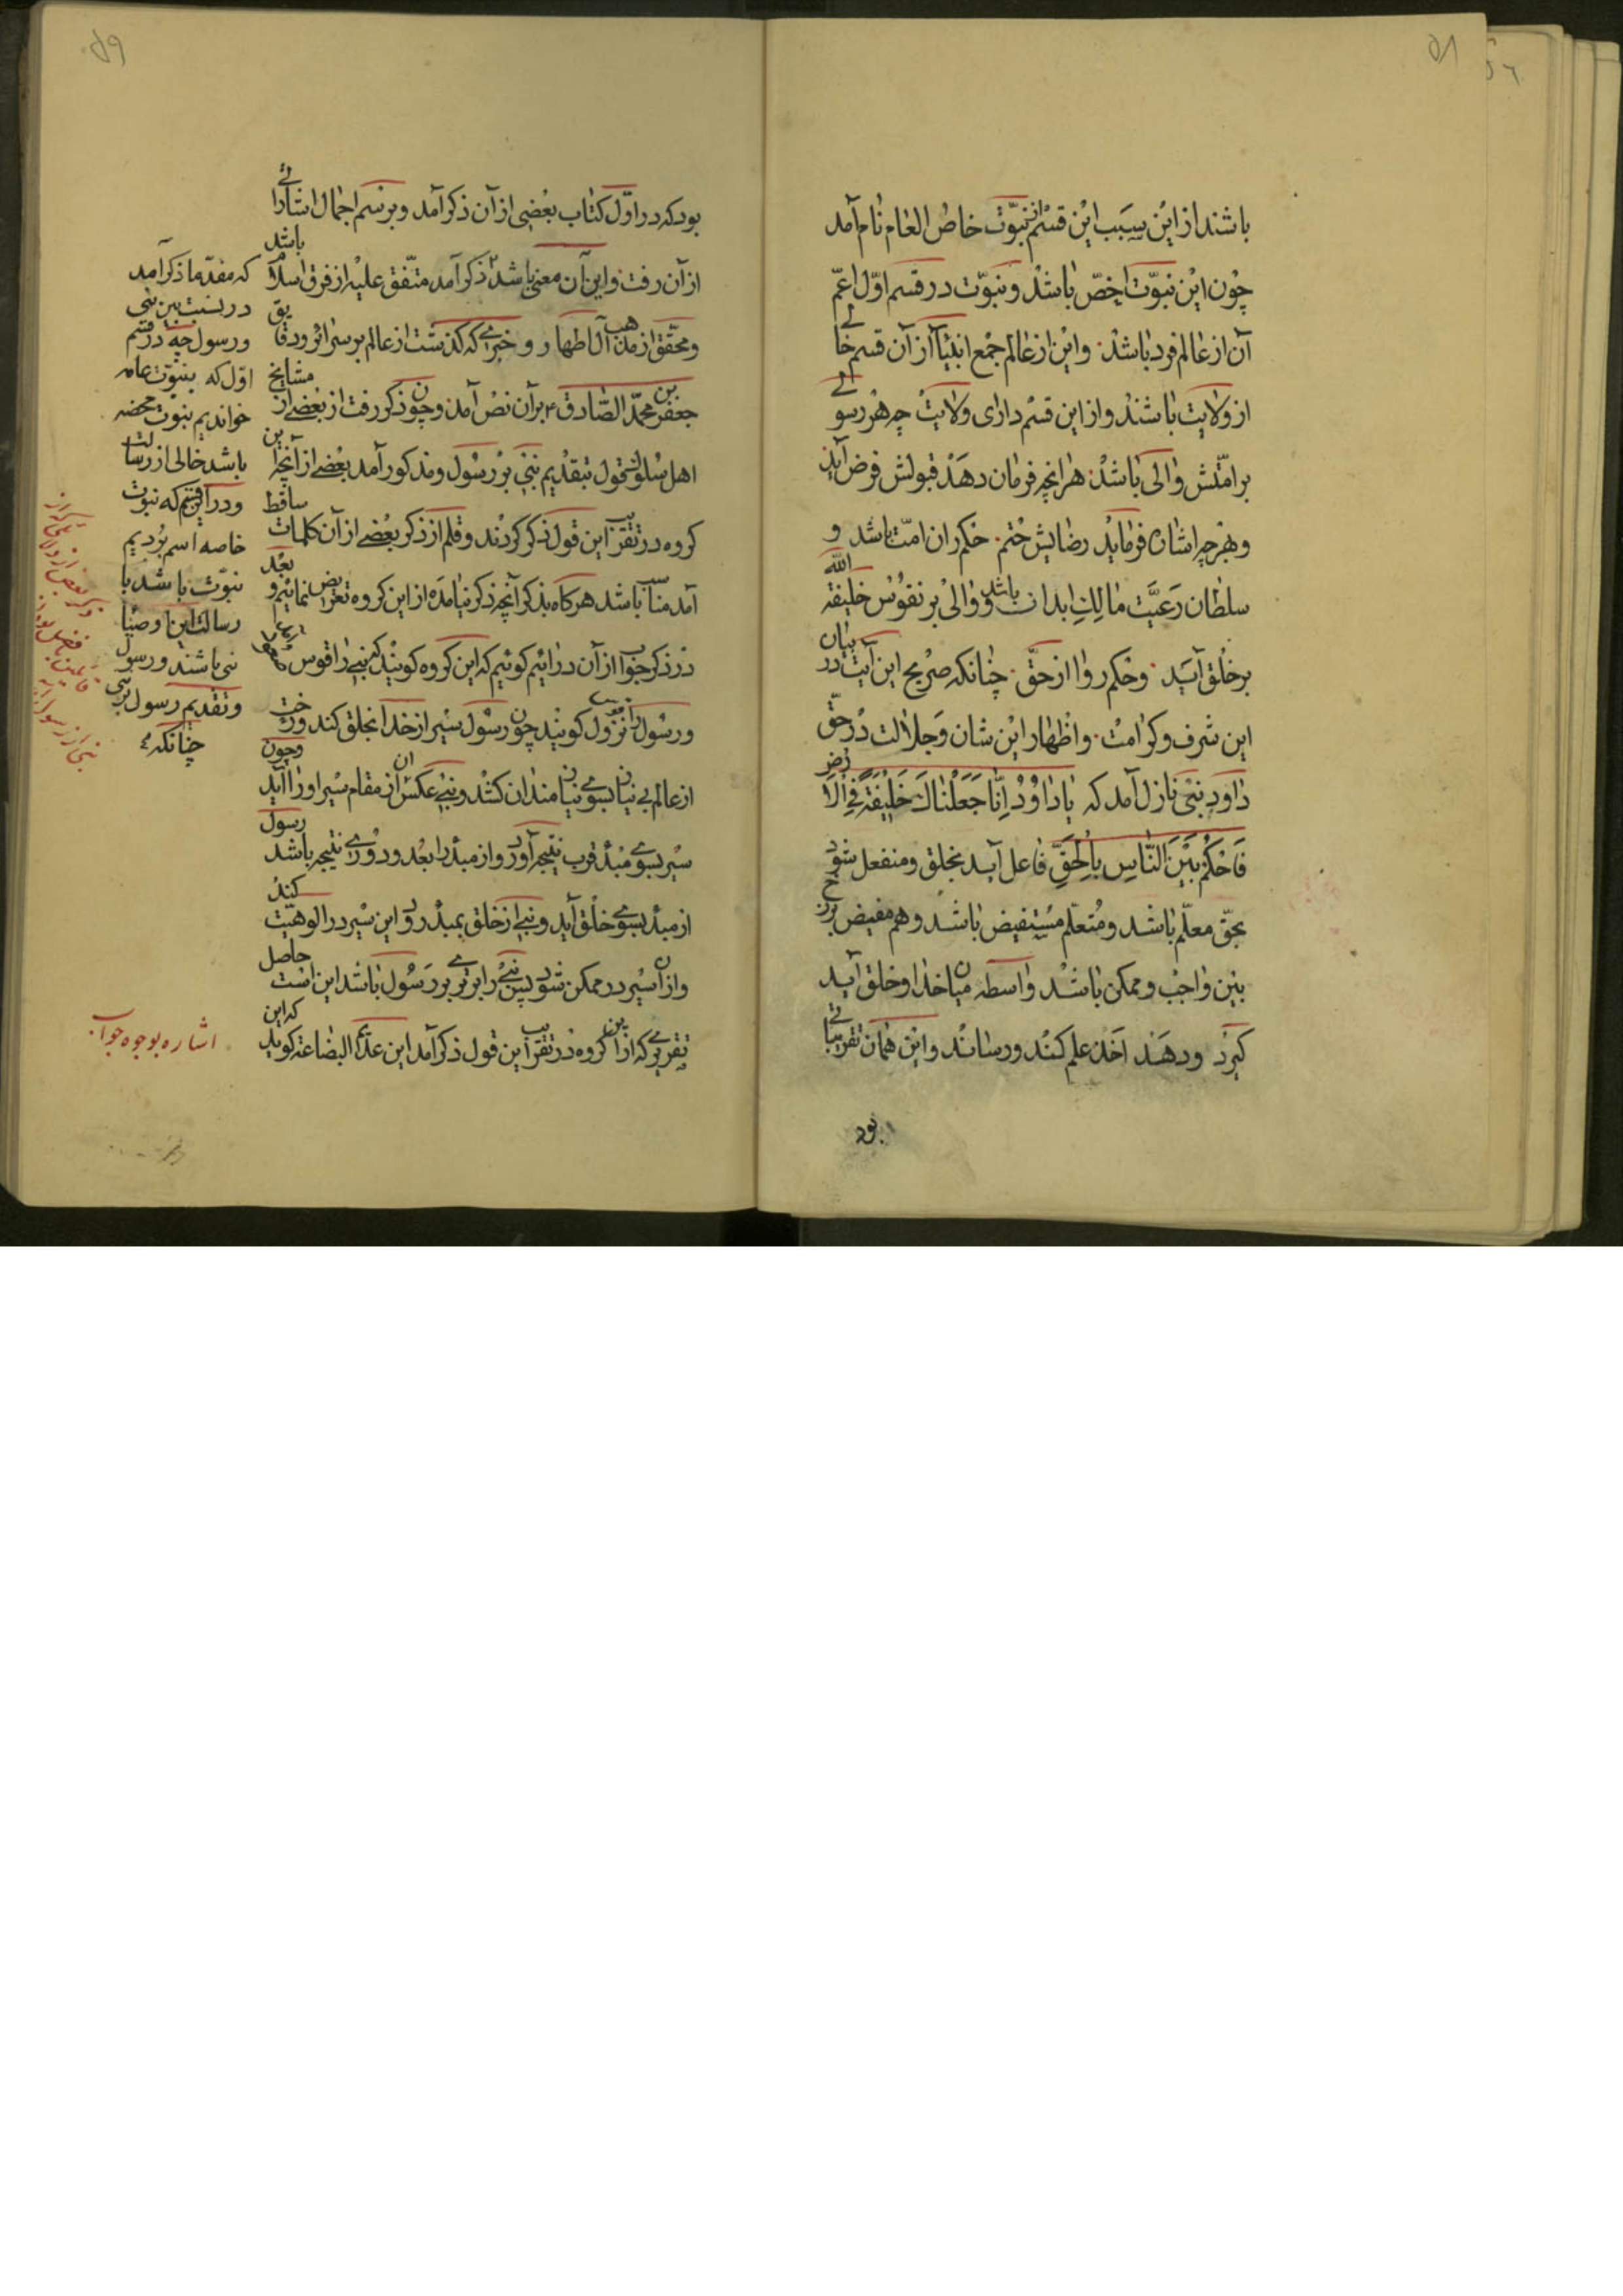 ۵۸
باشند از این سبب این قسم از نبوّت خاص العام نام آمد
چون این نبوّت اخصّ باشد و نبوّت در قسم اوّل اعمّ
آن از عالم فرد باشد و این از عالم جمع انبیا از آن قسم خالی
از ولایت باشند و از این قسم دارای ولایت چه هر رسولی
بر امّتش والی باشد هر انچه فرمان دهد قبولش فرض آید
و بهر چه اشاره فرماید رضایش حتم حکمران امّت باشد و
سلطان رعیّت مالک ابدان باشد و والی بر نفوس خلیفة الله
بر خلق آید و حکم روا از حقّ چنانکه صریح این آیت در بیان
این شرف و کرامت و اظهار این شان و جلالت در حقّ
داود نبی نازل آمد که یا داوُدُ اِنّا جَعَلْناكَ خَلیفَةً فِی الاَرض
فَاحْکُمْ بَیْنَ النّاسِ بِالْحَقِّ فاعل آید بخلق و منفعل شود
بحقّ معلّم باشد و متعلّم مستفیض باشد و هم مفیض برزخ
بین واجب و ممکن باشد واسطه میان خدا و خلق آید
گیرد و دهند اخذ علم کنند و رسانند و این همان تقریباتی
بود
۵۹
بود که در اوّل کتاب بعضی از آن ذکر آمد و برسم اجمال اشارائی
از آن رفت و این آن معنی باشد ذکر آمد متّفق علیه از فرق اسلام باشد
و محقّق از مذهب آل اطهار و خبرے که گذشت از عالم بر سرائر و دقایق
جعفر بن محمّد الصّادق ع بر آن نصّ آمد و چون ذکر رفت از بعضے از مشایخ
اهل سلوک قول بتقدیم نبی بر رسول و مذکور آمد بعضے از آنچه این
گروه در تقریب این قول ذکر کردند و قلم از ذکر بعضے از آن کلمات ساقط
آمد مناسب باشد هر گاه بذکر آنچه ذکر نیامده از این گروه تعرّض نمائیم و بعد
در ذکر جواب از آن درائیم گوئیم که این گروه گویند که نبی را قوس
و رسول را نزول گویند چون رسول سیر از خدا بخلق کند و رخت
از عالم بی نیازان بسوے نیازمندان کشد و نبی عکس آن از مقام سیر او را آید و چون
سیر بسوے مبدء قرب نتیجه آورد و از مبدء را بعد و دورے نتیجه باشد رسول
از مبدء بسوے خلق آید و نبی از خلق بمبدء رود این سیر در الوهیّت کند
و از آن سیر در ممکن شود پس نبی را برترے بر رسول باشد این است حاصل
تقریرے که از این گروه در تقریب این قول ذکر آمد این عدیم البضاعة گوید که این
که مقدّما ذکر آمد
در نسبت بین نبی
و رسول چه در قسم
اوّل که بنبوّت عامه
خواندیم نبوّت محضه
باشد خالی از رسالت
و در این قسم که نبوّت
خاصه اسم بردیم
نبوّت باشد با
رسالت این اوصیا
نبی باشند و رسول
و تقدیم رسول بر نبی
چنانکه
اشاره بوجوه جواب